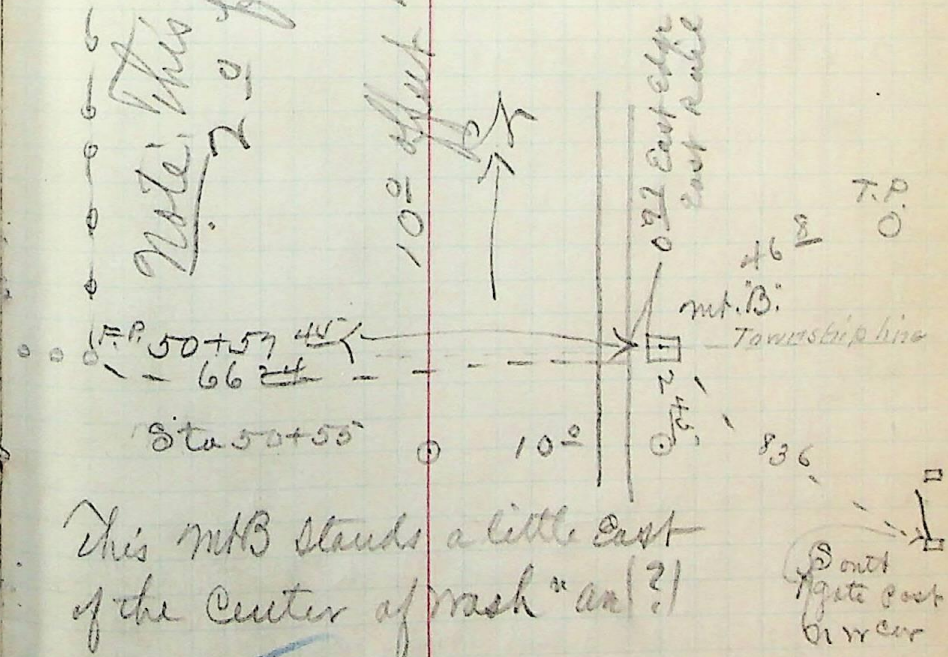 Note: This
2 0
10 0 offset
N
0 97 East Edge
East Rail
T.P.
46 8
Mt. "B"
Township line
F.P. 50+57 45
66 24
2 45
Sta 50+55
10 0
836
This Mt B stands a little East
of the Center of Wash "an (?)
South
gate post
N W Cor